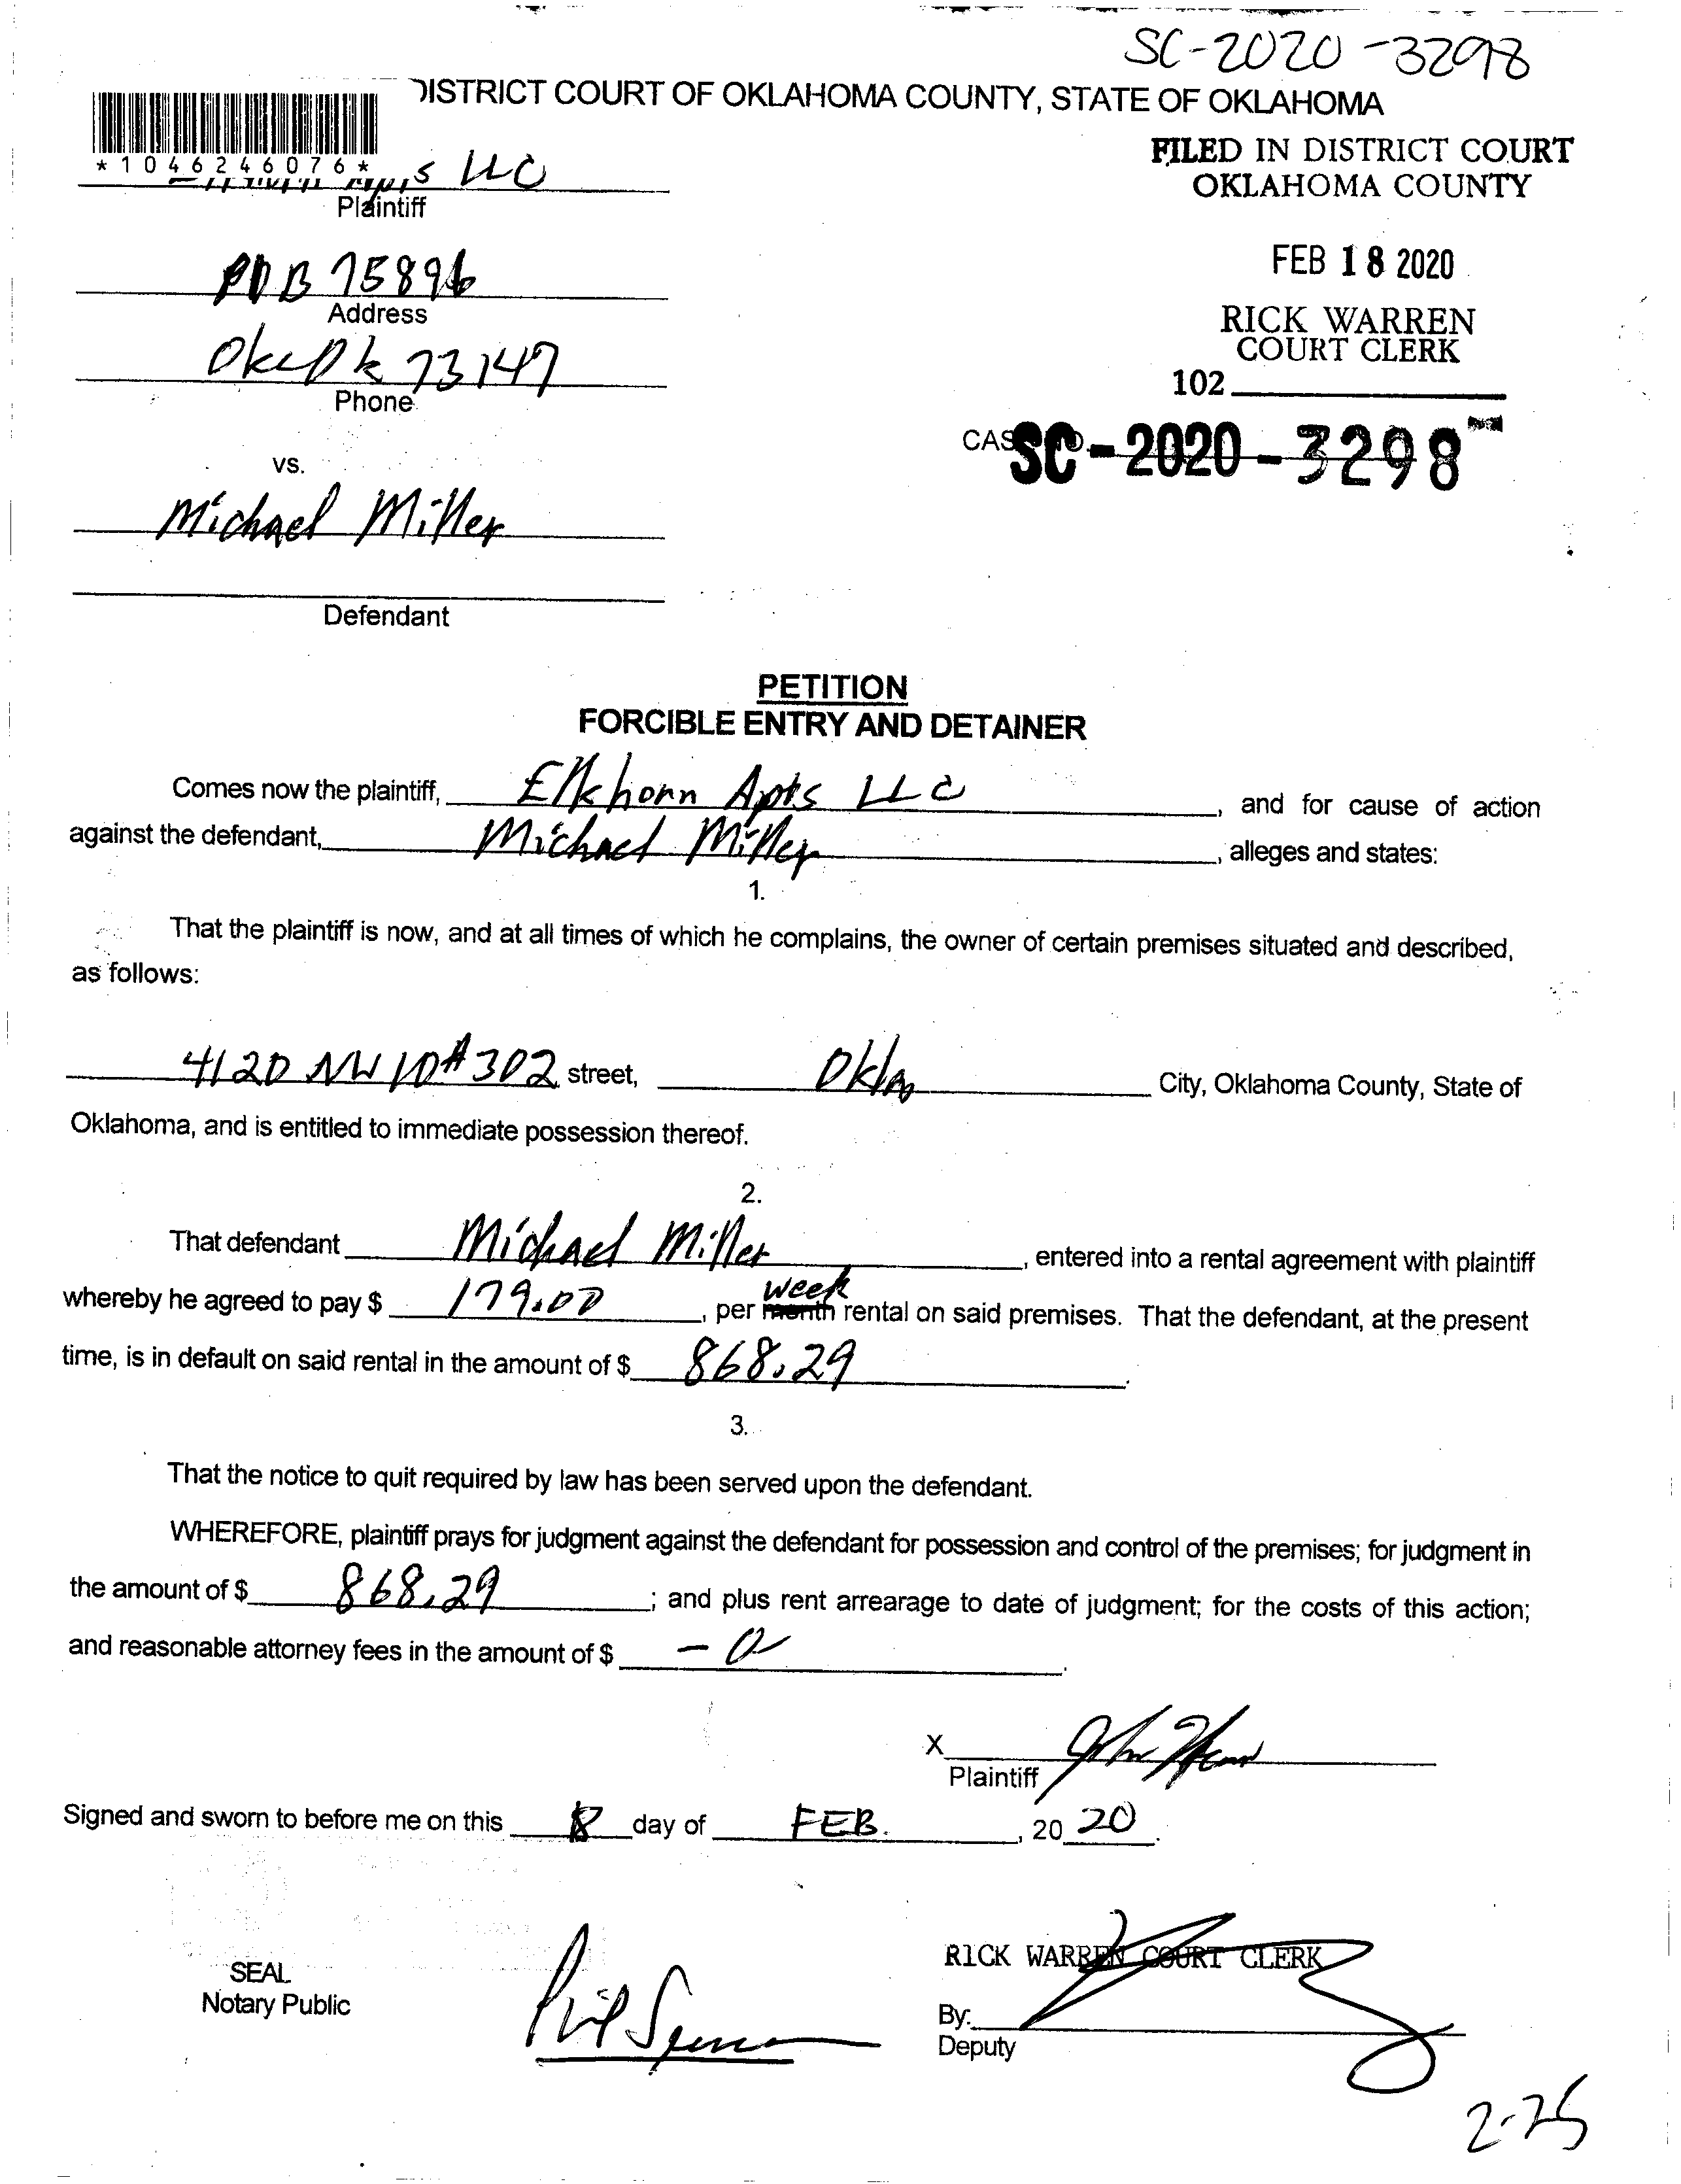 SC-2020-3298
DISTRICT COURT OF OKLAHOMA COUNTY, STATE OF OKLAHOMA
*1046246076*
FILED IN DISTRICT COURT
OKLAHOMA COUNTY
LLC
Plaintiff
FEB 18 2020
POB 75896
Address
RICK WARREN
COURT CLERK
Ok 73147
Phone
102
CAS SC-2020-3298
vs.
Michael Miller
Defendant
PETITION
FORCIBLE ENTRY AND DETAINER
Comes now the plaintiff, Elkhorn Apts LLC, and for cause of action
against the defendant, Michael Miller, alleges and states:
1.
That the plaintiff is now, and at all times of which he complains, the owner of certain premises situated and described,
as follows:
4120 NW 10 #302 street, Okla City, Oklahoma County, State of
Oklahoma, and is entitled to immediate possession thereof.
2.
That defendant Michael Miller, entered into a rental agreement with plaintiff
week
whereby he agreed to pay $ 179.00, per month rental on said premises. That the defendant, at the present
time, is in default on said rental in the amount of $ 868.29.
3.
That the notice to quit required by law has been served upon the defendant.
WHEREFORE, plaintiff prays for judgment against the defendant for possession and control of the premises; for judgment in
the amount of $ 868.29; and plus rent arrearage to date of judgment; for the costs of this action;
and reasonable attorney fees in the amount of $ -0-.
X
Plaintiff
Signed and sworn to before me on this day of FEB., 20 20.
RICK WARREN COURT CLERK
SEAL
Notary Public
By:
Deputy
2-25